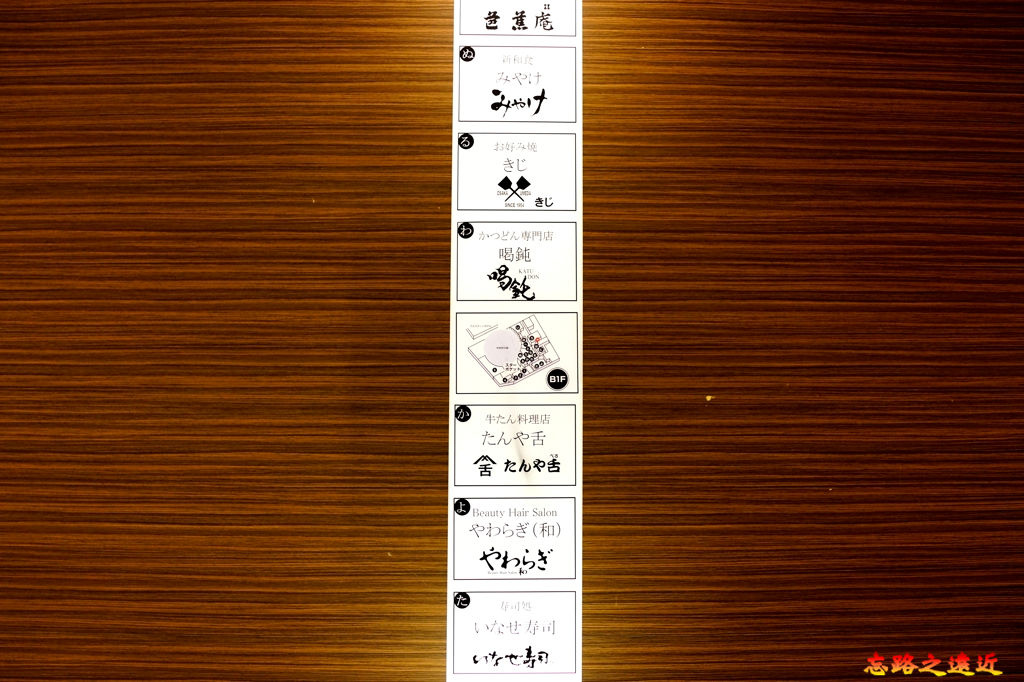 芭蕉庵
ぬ
新和食
みやけ
みやけ
る
お好み焼
きじ
OSAKA UMEDA
SINCE 1954
きじ
わ
かつどん専門店
喝鈍
喝鈍
KATU
DON
B1F
か
牛たん料理店
たんや舌
舌 たんや舌
よ
Beauty Hair Salon
やわらぎ(和)
やわらぎ
Beauty Hair Salon 和
た
寿司処
いなせ寿司
いなせ寿司
忘路之遠近